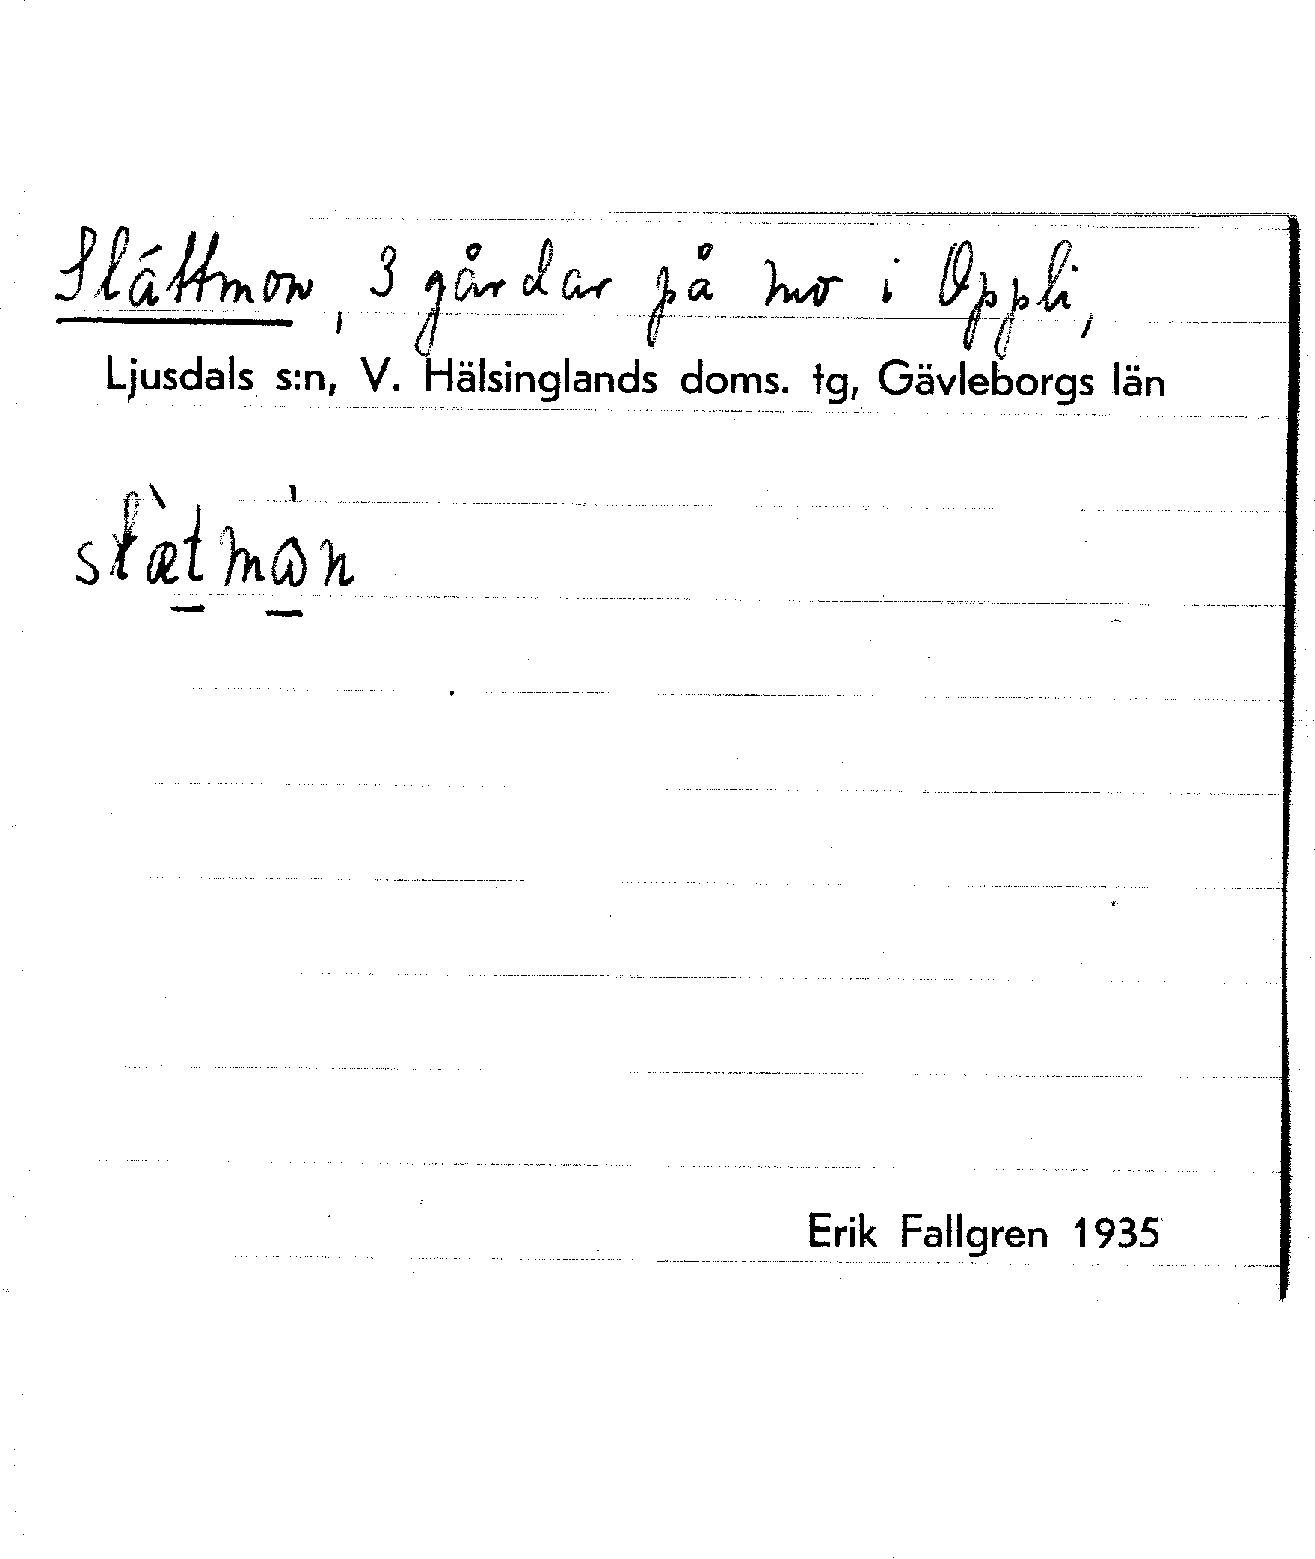 Slättmon, 3 gårdar på mo i Oppli,
Ljusdals s:n, V. Hälsinglands doms. tg, Gävleborgs län
Erik Fallgren 1935